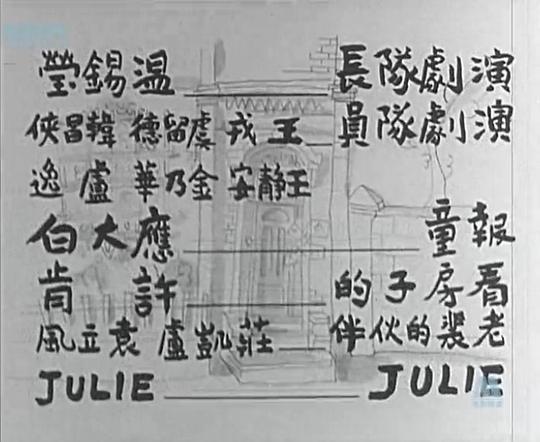 演劇隊長 温錫瑩
演劇隊員 王戎 虞留德 韓昌俠
王靜安 金乃華 盧逸
報童 應大白
看房子的 許肯
老裴的伙伴 莊凱盧 袁立風
JULIE JULIE